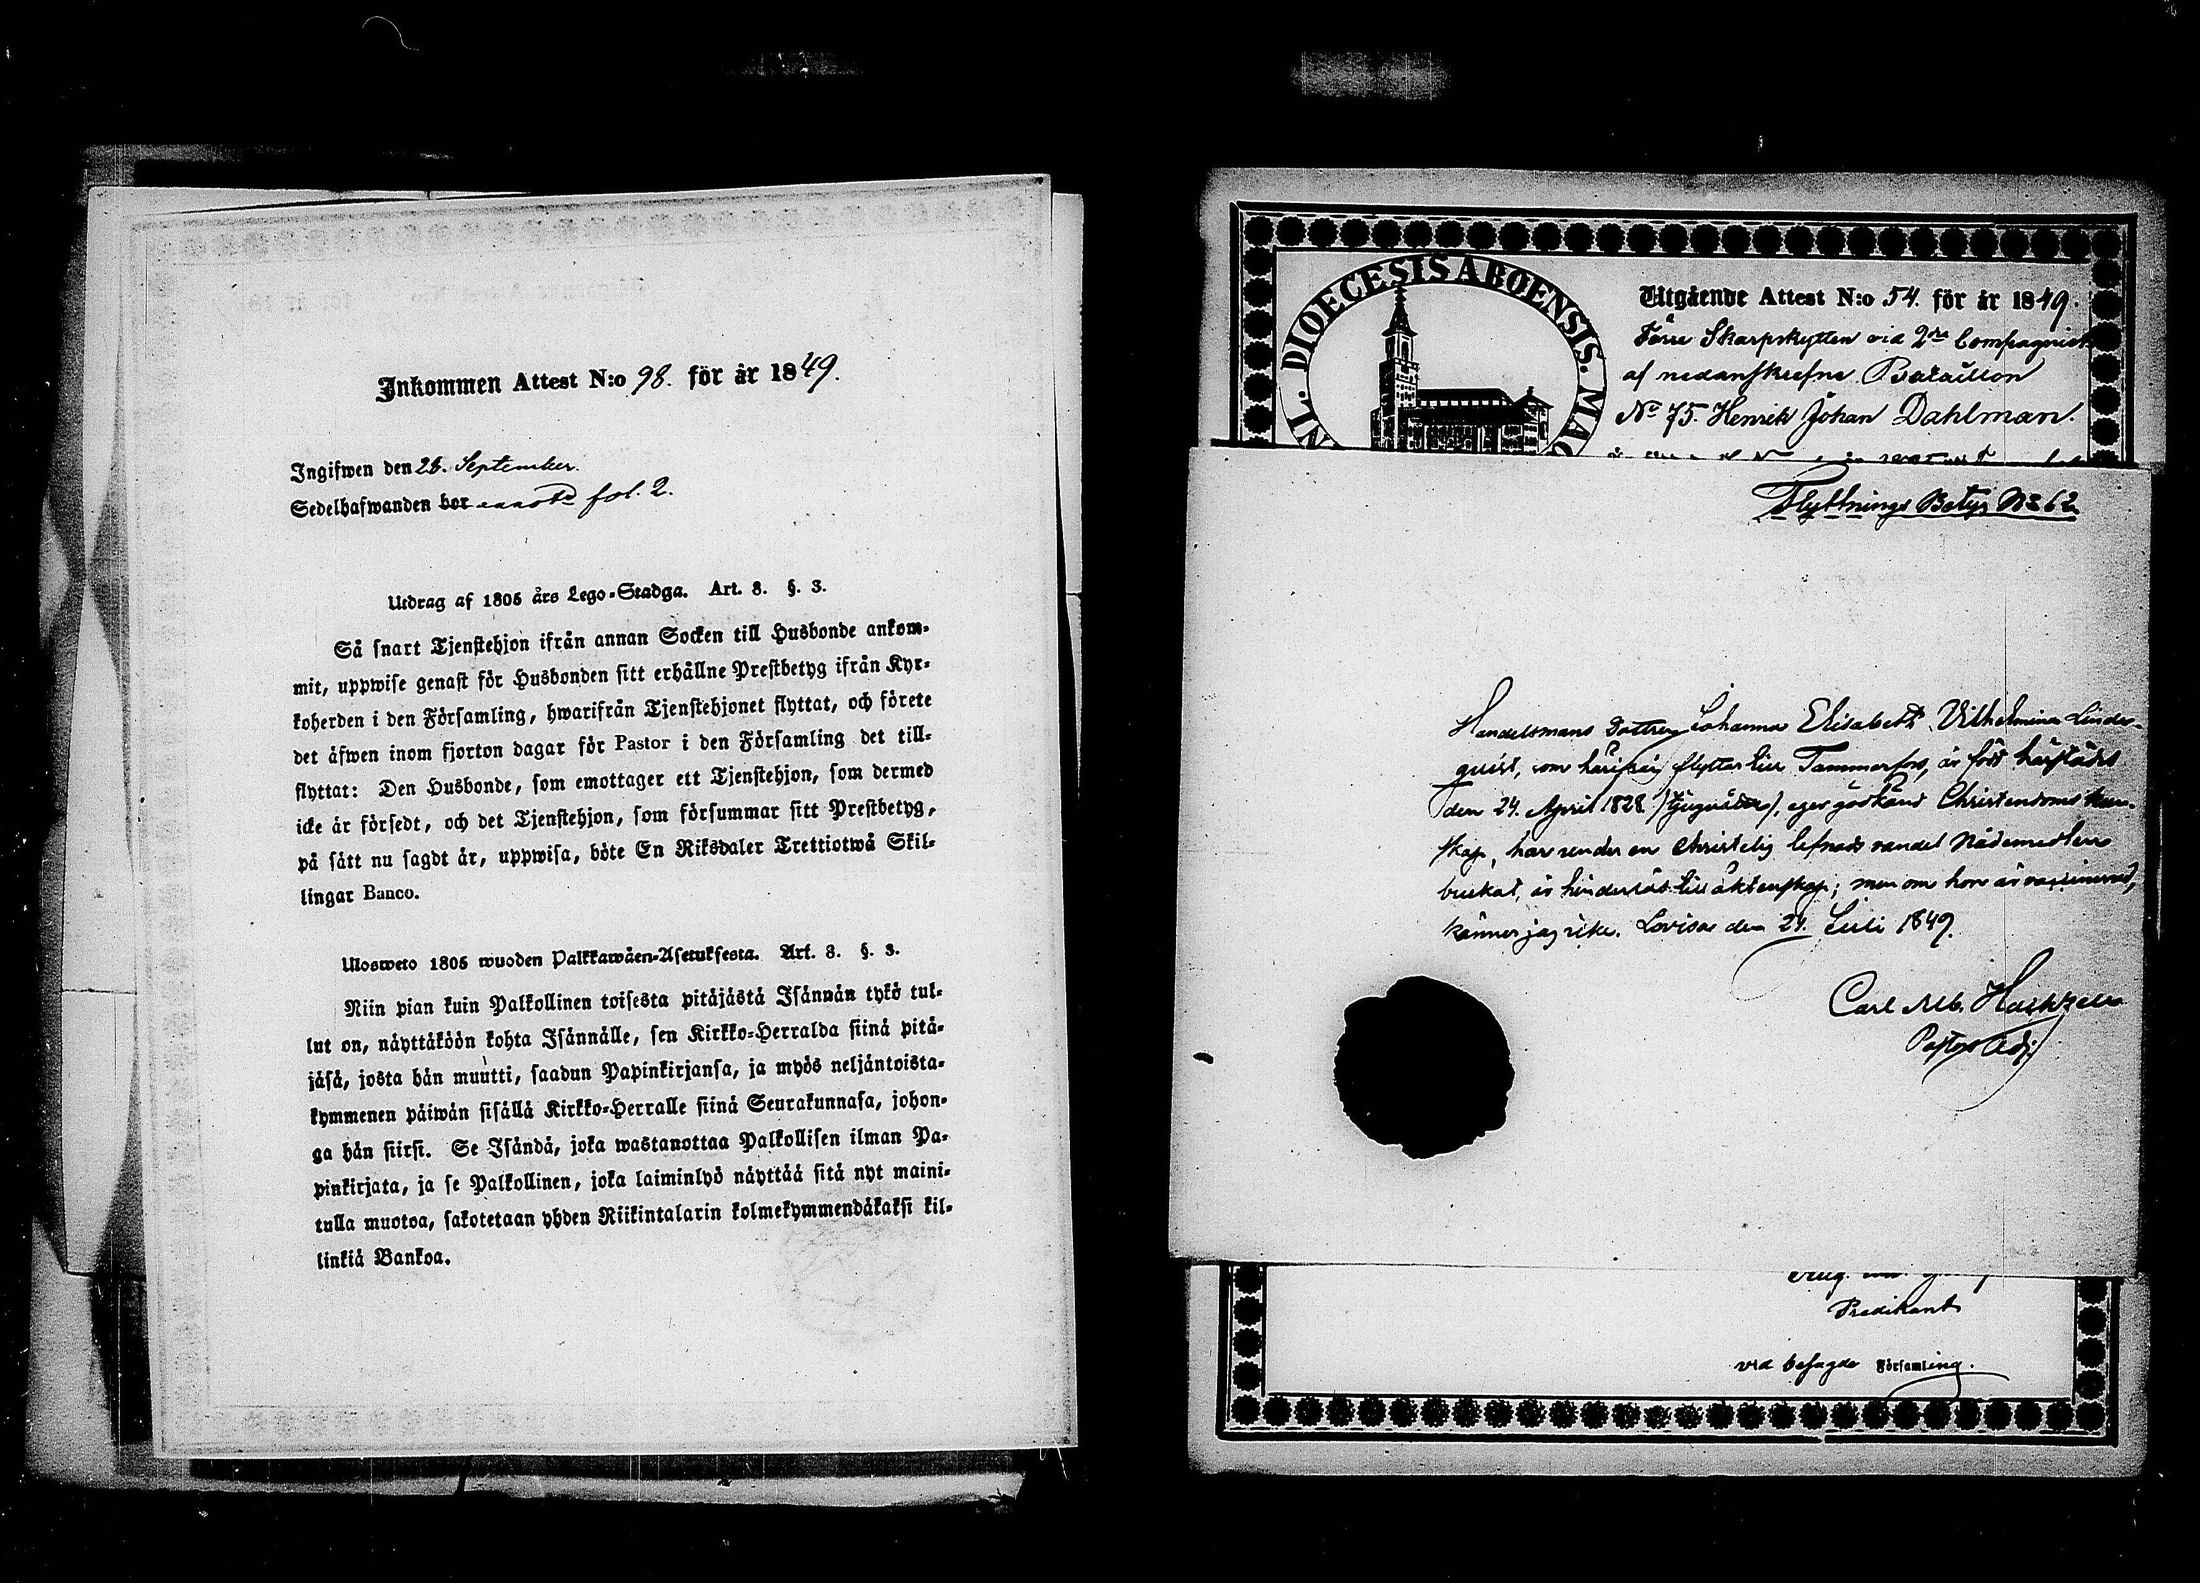 Inkommen Attest N:o 98. för år 1849.
Ingifwen den 28. September.
Sedelhafwanden bor fol. 2.
Utdrag af 1805 års Lego-Stadga. Art. 8. §. 3.
Så snart Tjenstehjon ifrån annan Socken till Husbonde ankom-
mit, uppwise genast för Husbonden sitt erhållne Prestbetyg ifrån Kyr-
koherden i den Församling, hwarifrån Tjenstehjonet flyttat, och förete
det äfwen inom fjorton dagar för Pastor i den Församling det till-
flyttat: Den Husbonde, som emottager ett Tjenstehjon, som dermed
icke är försedt, och det Tjenstehjon, som försummar sitt Prestbetyg,
på sätt nu sagdt är, uppwisa, böte En Riksdaler Trettiotwå Skil-
lingar Banco.
Ulosweto 1805 wuoden Palkkawäen-Asetuksesta. Art. 8. §. 3.
Niin pian kuin Palkollinen toisesta pitäjästä Isännän tykö tul-
lut on, näyttäköön kohta Isännälle, sen Kirkko-Herralda siinä pitä-
jäsä, josta hän muutti, saadun Papinkirjansa, ja myös neljäntoista-
kymmenen päiwän sisällä Kirkko-Herralle siinä Seurakunnasa, johon-
ga hän siirsi. Se Isändä, joka wastanottaa Palkollisen ilman Pa-
pinkirjata, ja se Palkollinen, joka laiminlyö näyttää sitä nyt maini-
tulla muotoa, sakotetaan yhden Riikintalarin kolmekymmendäkaksi kil-
linkiä Bankoa.
DIOECESIS ABOENSIS. MAG
Utgående Attest N:o 54. för år 1849.
Förre Skarpskytten vid 2dra Compagniet
af nedanskrefne Bataillon
No 75. Henrik Johan Dahlman.
Flyttnings Betyg No 62
Handelsmans Dottren Johanna Elisabeth Vilhelmina Linde-
quist, som härifrån flyttar till Tammerfors, är född härstädes
den 24. April 1828 /tjuguåtta/, eger godkänd Christendoms kun-
skap, har under en Christelig lefnads vandel Nådemedlen
brukat, är hinderlös till äktenskap; men om hon är vaccinerad,
känner jag icke. Lovisa den 24. Juli 1849.
Carl Alb.
Pastors Adj.
Predikant
vid besagde Församling.